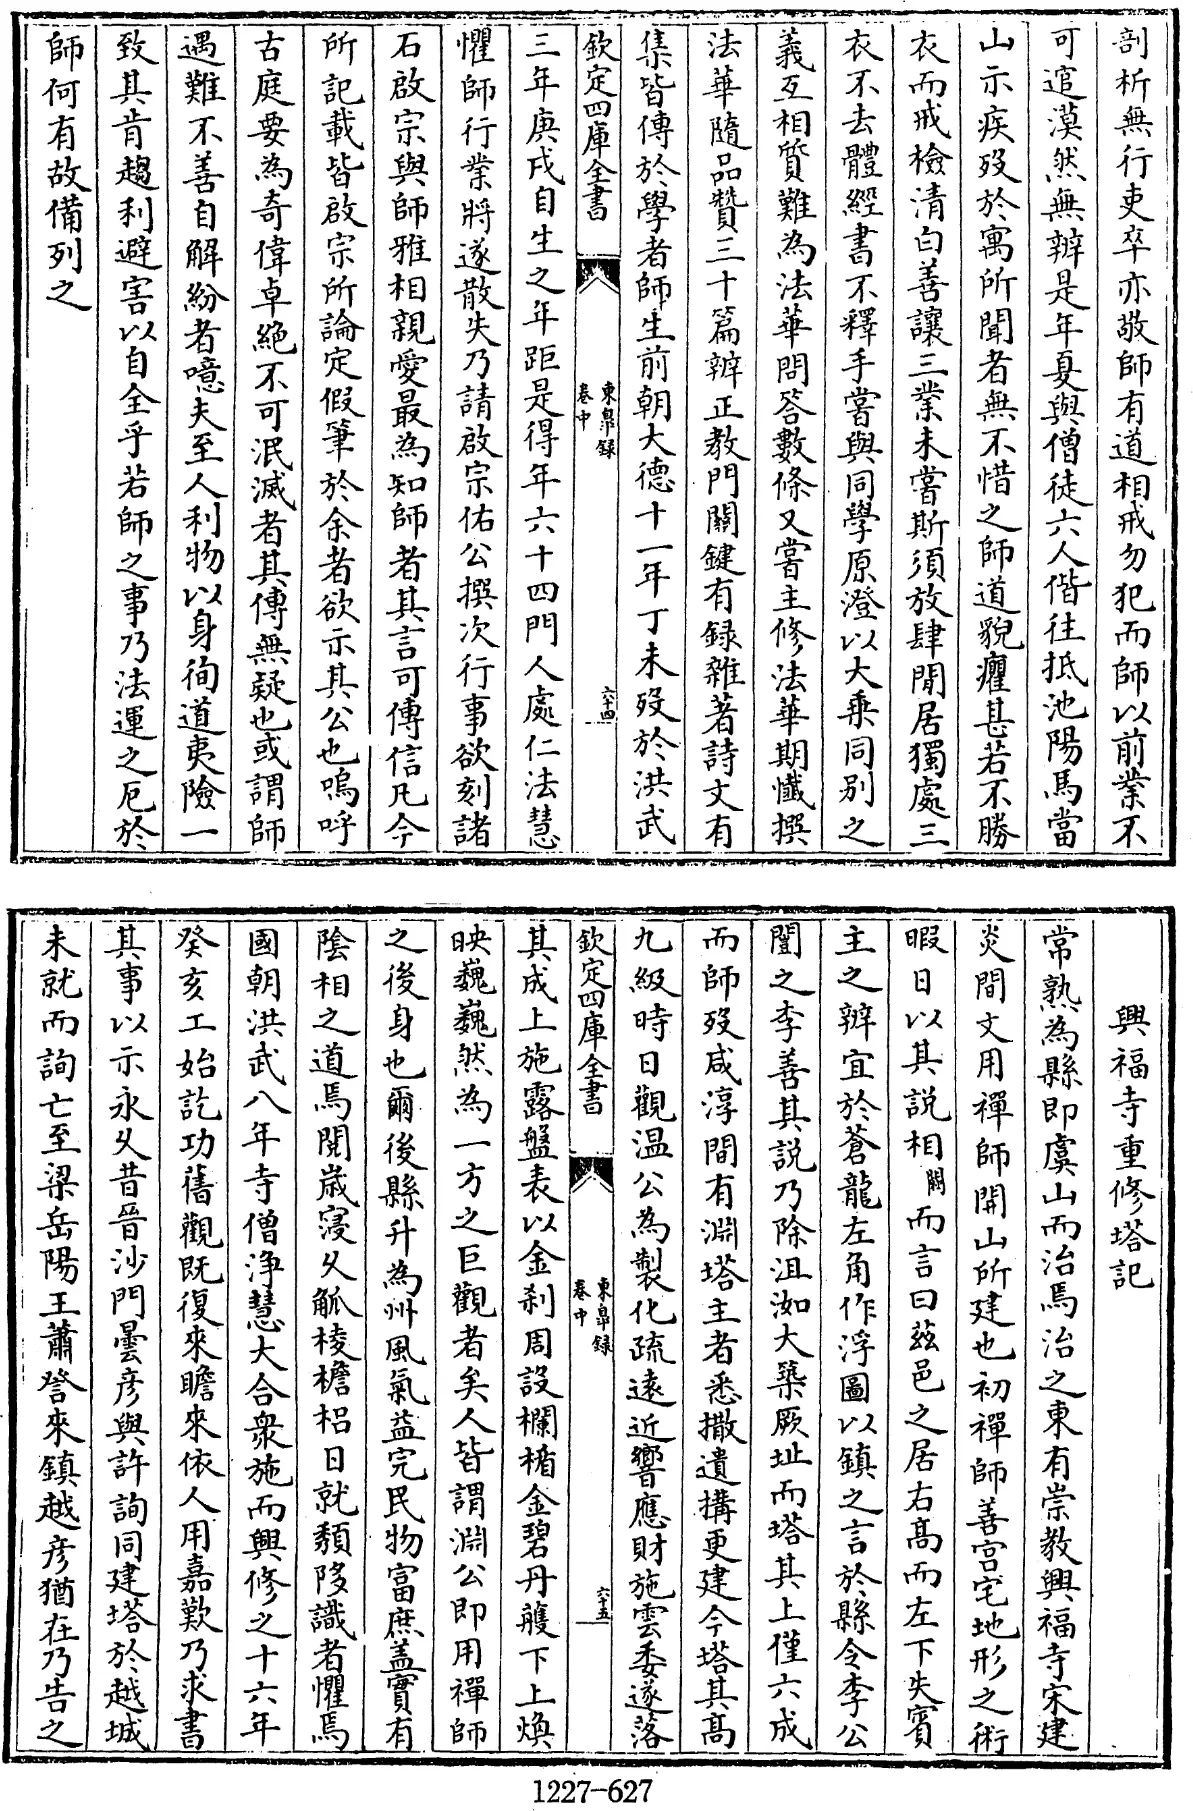 剖析無行吏卒亦敬師有道相戒勿犯而師以前業不
可逭漠然無辨是年夏與僧徒六人偕往抵池陽馬當
山示疾歿於寓所聞者無不惜之師道貌癯甚若不勝
衣而戒檢清白善讓三業未嘗斯須放肆閒居獨處三
衣不去體經書不釋手嘗與同學原澄以大乗同别之
義互相質難為法華問答數條又嘗主修法華期懺撰
法華隨品贊三十篇辨正教門關鍵有録雜著詩文有
集皆傳於學者師生前朝大德十一年丁未歿於洪武
欽定四庫全書
東臯録
卷中
六十四
三年庚戌自生之年距是得年六十四門人處仁法慧
懼師行業將遂散失乃請啟宗佑公撰次行事欲刻諸
石啟宗與師雅相親愛最為知師者其言可傳信凡今
所記載皆啟宗所論定假筆於余者欲示其公也嗚呼
古庭要為奇偉卓絶不可泯滅者其傳無疑也或謂師
遇難不善自解紛者噫夫至人利物以身徇道夷險一
致其肯趨利避害以自全乎若師之事乃法運之厄於
師何有故備列之
興福寺重修塔記
常熟為縣即虞山而治焉治之東有崇教興福寺宋建
炎間文用禪師開山所建也初禪師善宫宅地形之術
暇日以其説相闕而言曰兹邑之居右髙而左下失賔
主之辨宜於蒼龍左角作浮圖以鎮之言於縣令李公
闓之李善其説乃除沮洳大築厥址而塔其上僅六成
而師歿咸淳間有淵塔主者悉撒遺搆更建今塔其髙
九級時日觀温公為製化疏逺近響應財施雲委遂落
欽定四庫全書
東臯録
卷中
六十五
其成上施露盤表以金刹周設欄楯金碧丹雘下上煥
映巍巍然為一方之巨觀者矣人皆謂淵公即用禪師
之後身也爾後縣升為州風氣益完民物富庶盖實有
隂相之道焉閲嵗寖乆觚棱檐梠日就頽陊識者懼焉
國朝洪武八年寺僧浄慧大合衆施而興修之十六年
癸亥工始訖功舊觀既復來瞻來依人用嘉歎乃求書
其事以示永乆昔晉沙門曇彦與許詢同建塔於越城
未就而詢亡至梁岳陽王蕭詧來鎮越彦猶在乃告之
1227-627